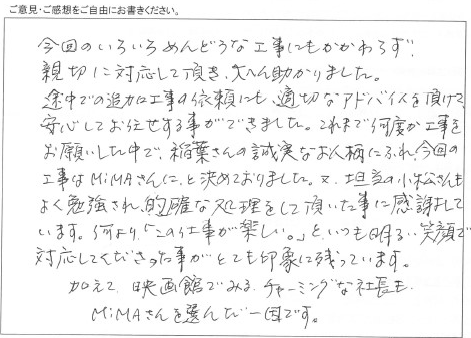 ご意見・ご感想をご自由にお書きください。
今回のいろいろめんどうな工事にもかかわらず、
親切に対応して頂き、大へん助かりました。
途中での追加工事の依頼にも、適切なアドバイスを頂けて
安心してお任せする事ができました。これまで何度か工事を
お願いした中で、稲葉さんの誠実なお人柄にふれ、今回の
工事はMiMAさんに、と決めておりました。又、担当の小松さんも
よく勉強され、的確な処理をして頂いた事に感謝して
います。何より、「この仕事が楽しい。」と、いつも明るい笑顔で
対応してくださった事がとても印象に残っています。
加えて、映画館でみる、チャーミングな社長も
MiMAさんを選んだ一因です。